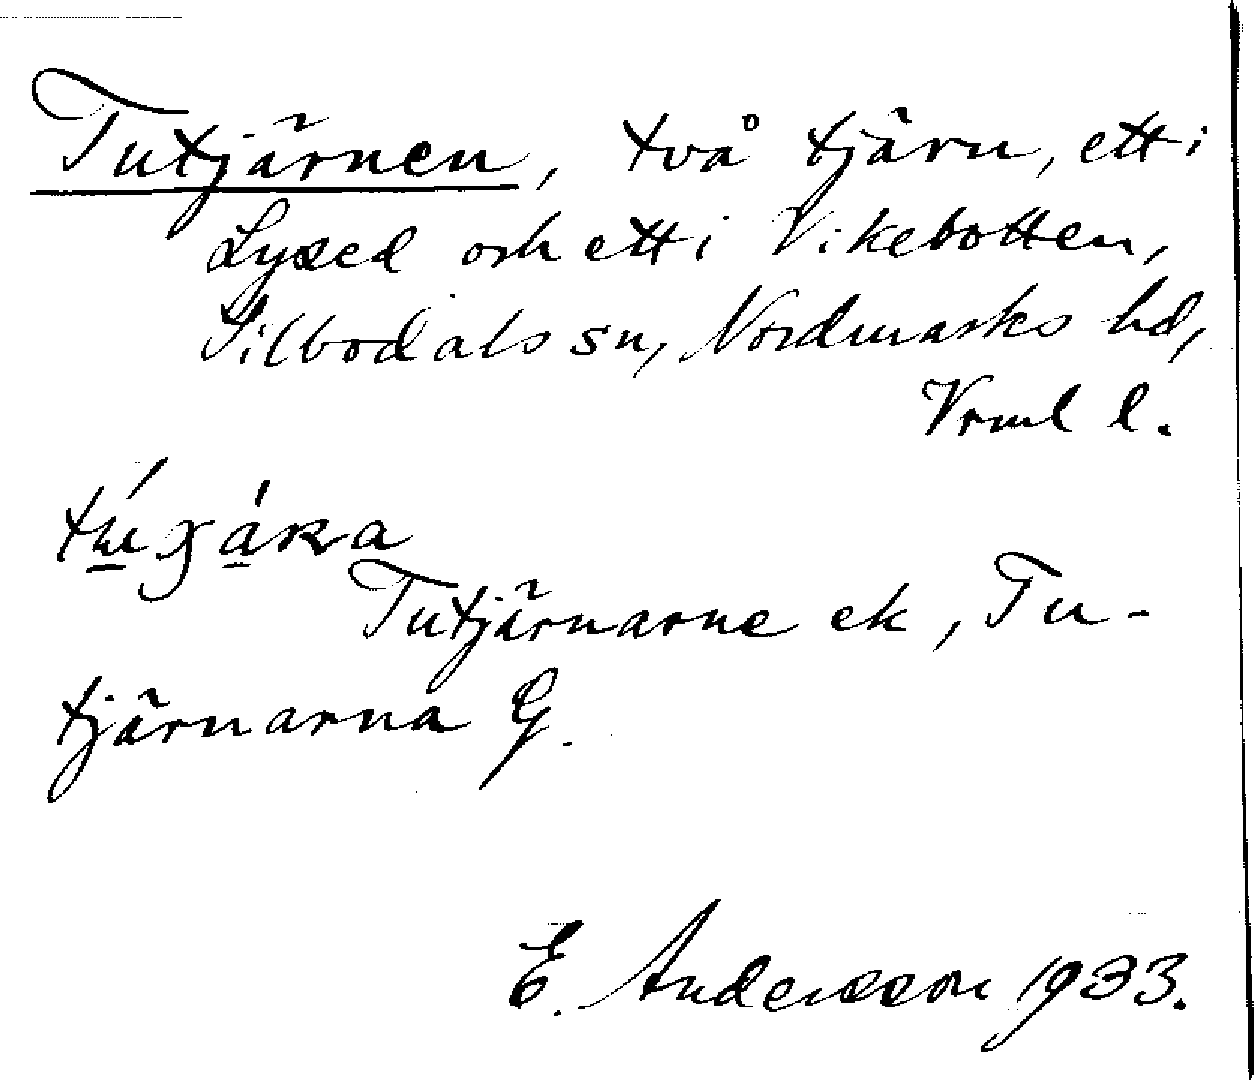 Tutjärnen, två tjärn, ett i
Lysed och ett i Vikebotten,
Silbodals sn, Nordmarks hd,
Vrml l.
Tutjärnarne ek, Tu-
tjärnarna G.
E. Andersson 1933.